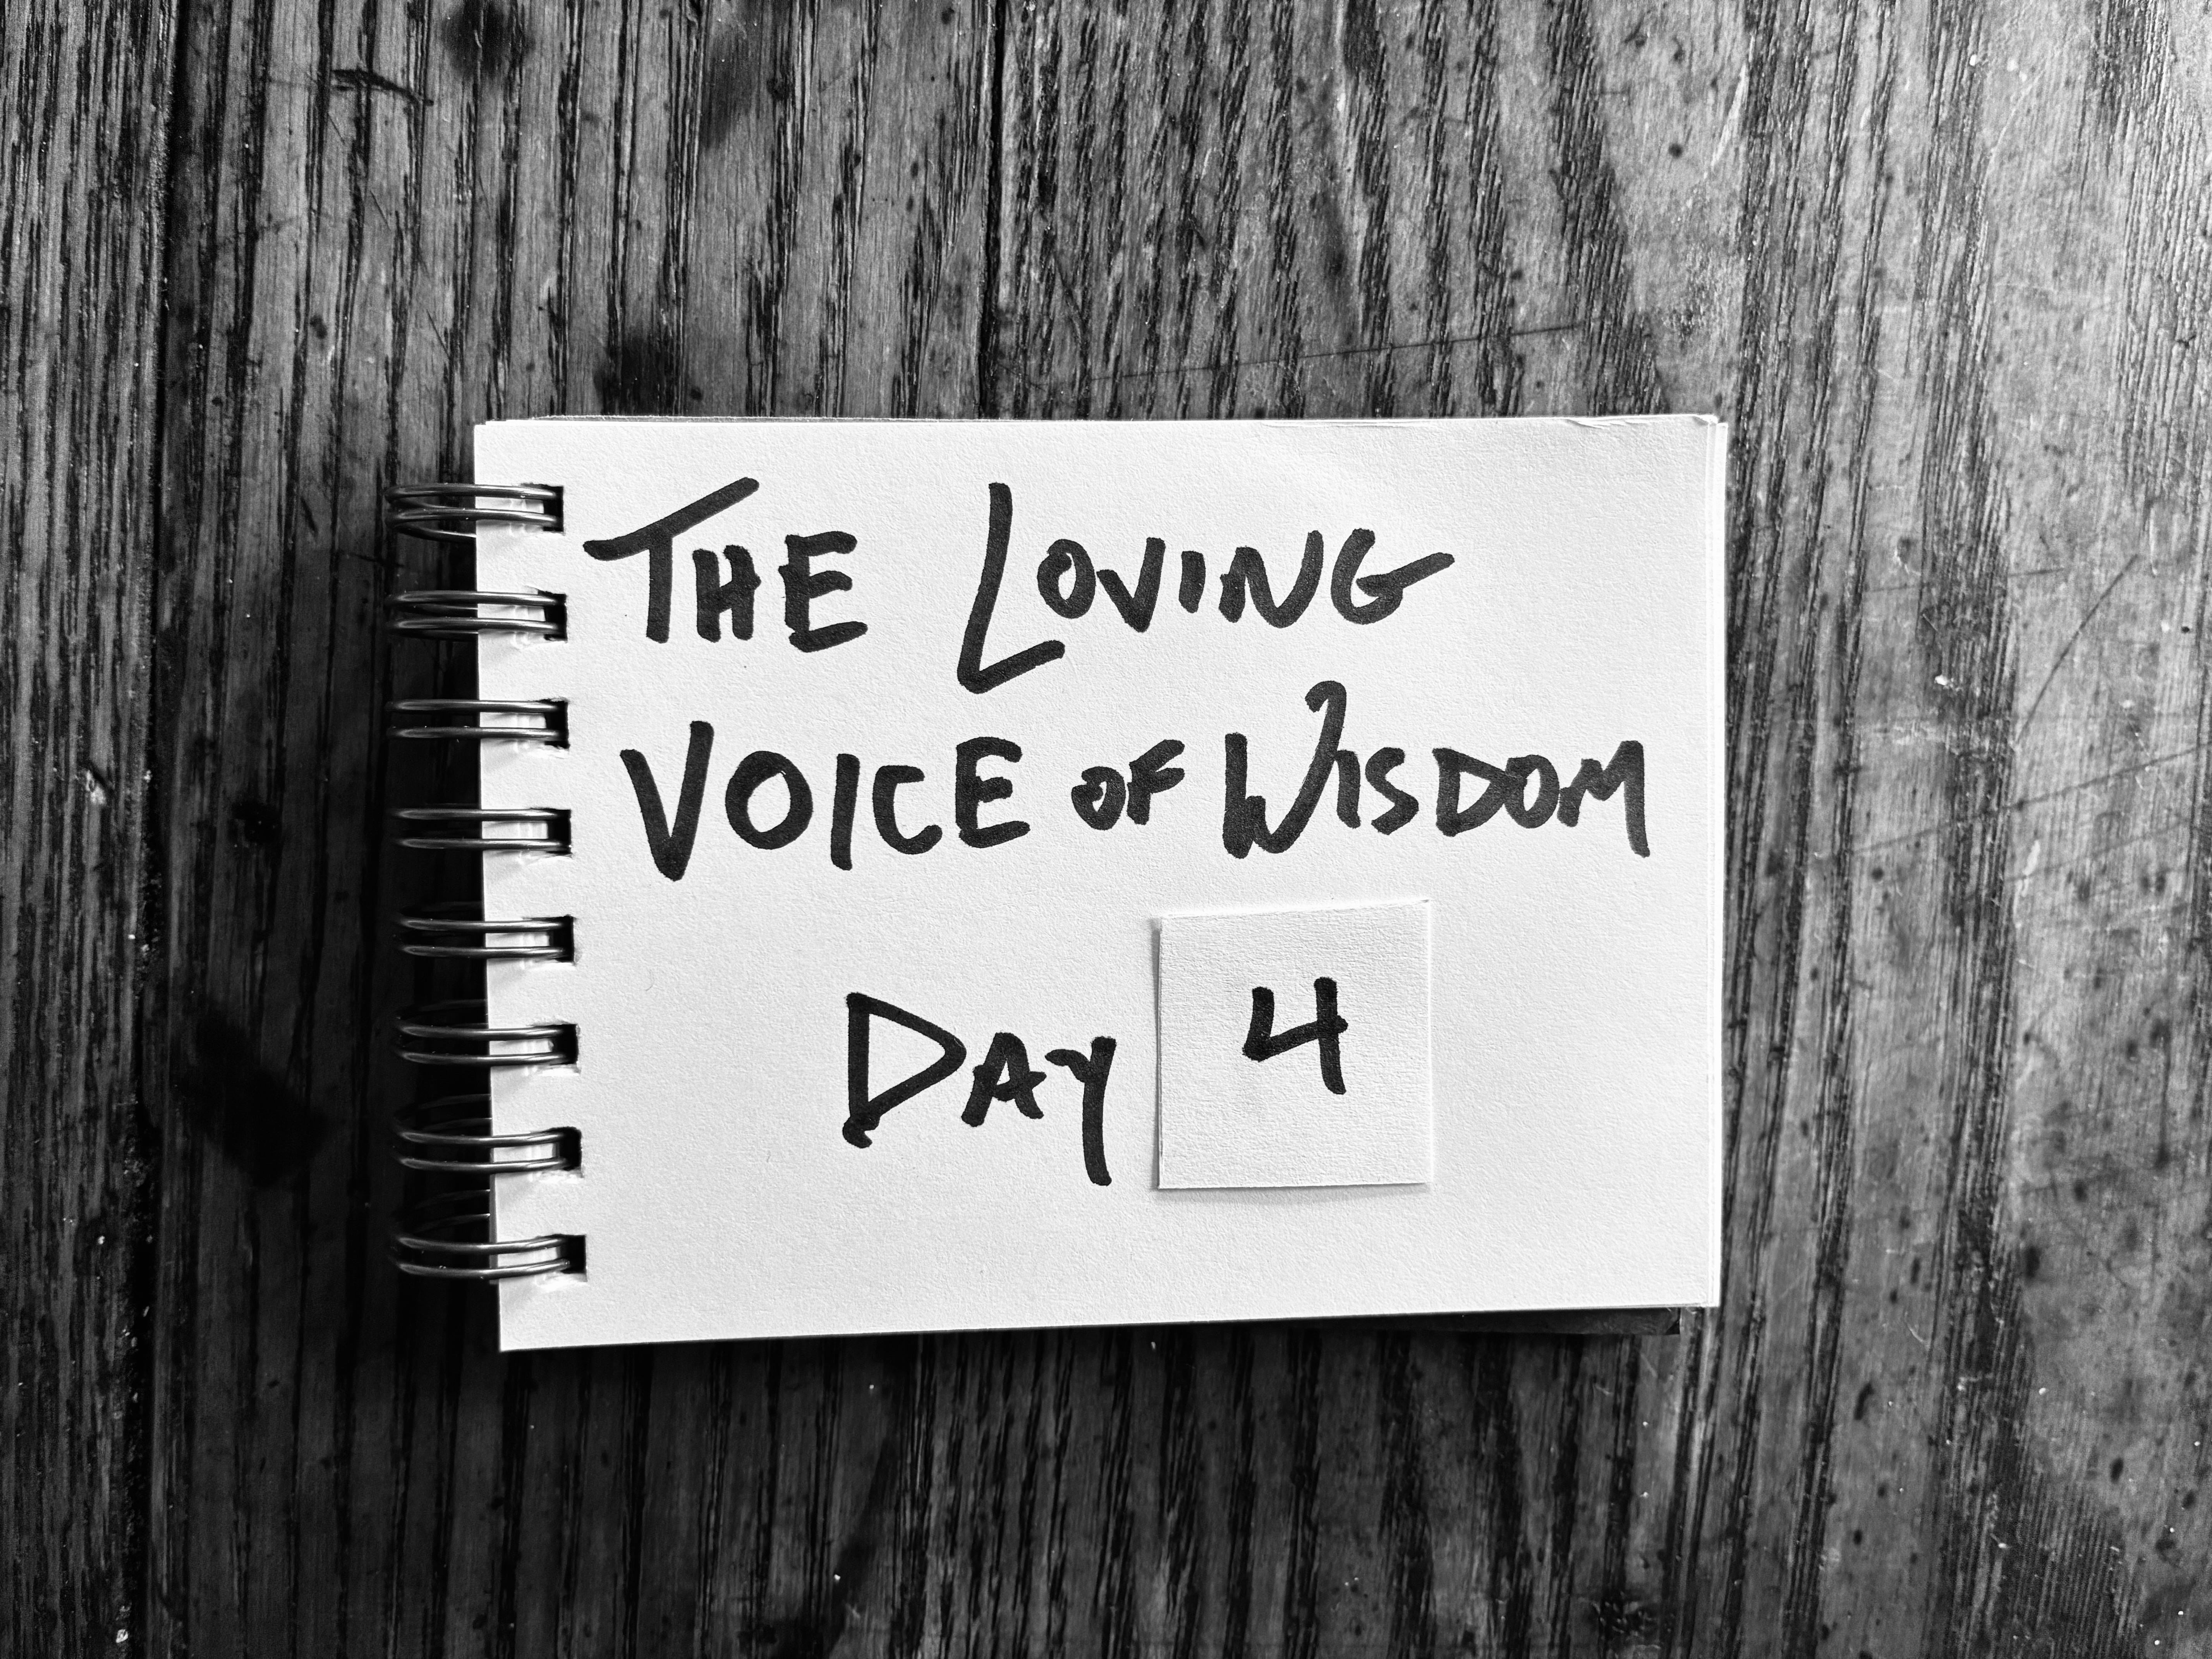 THE LOVING
VOICE OF WISDOM
DAY 4